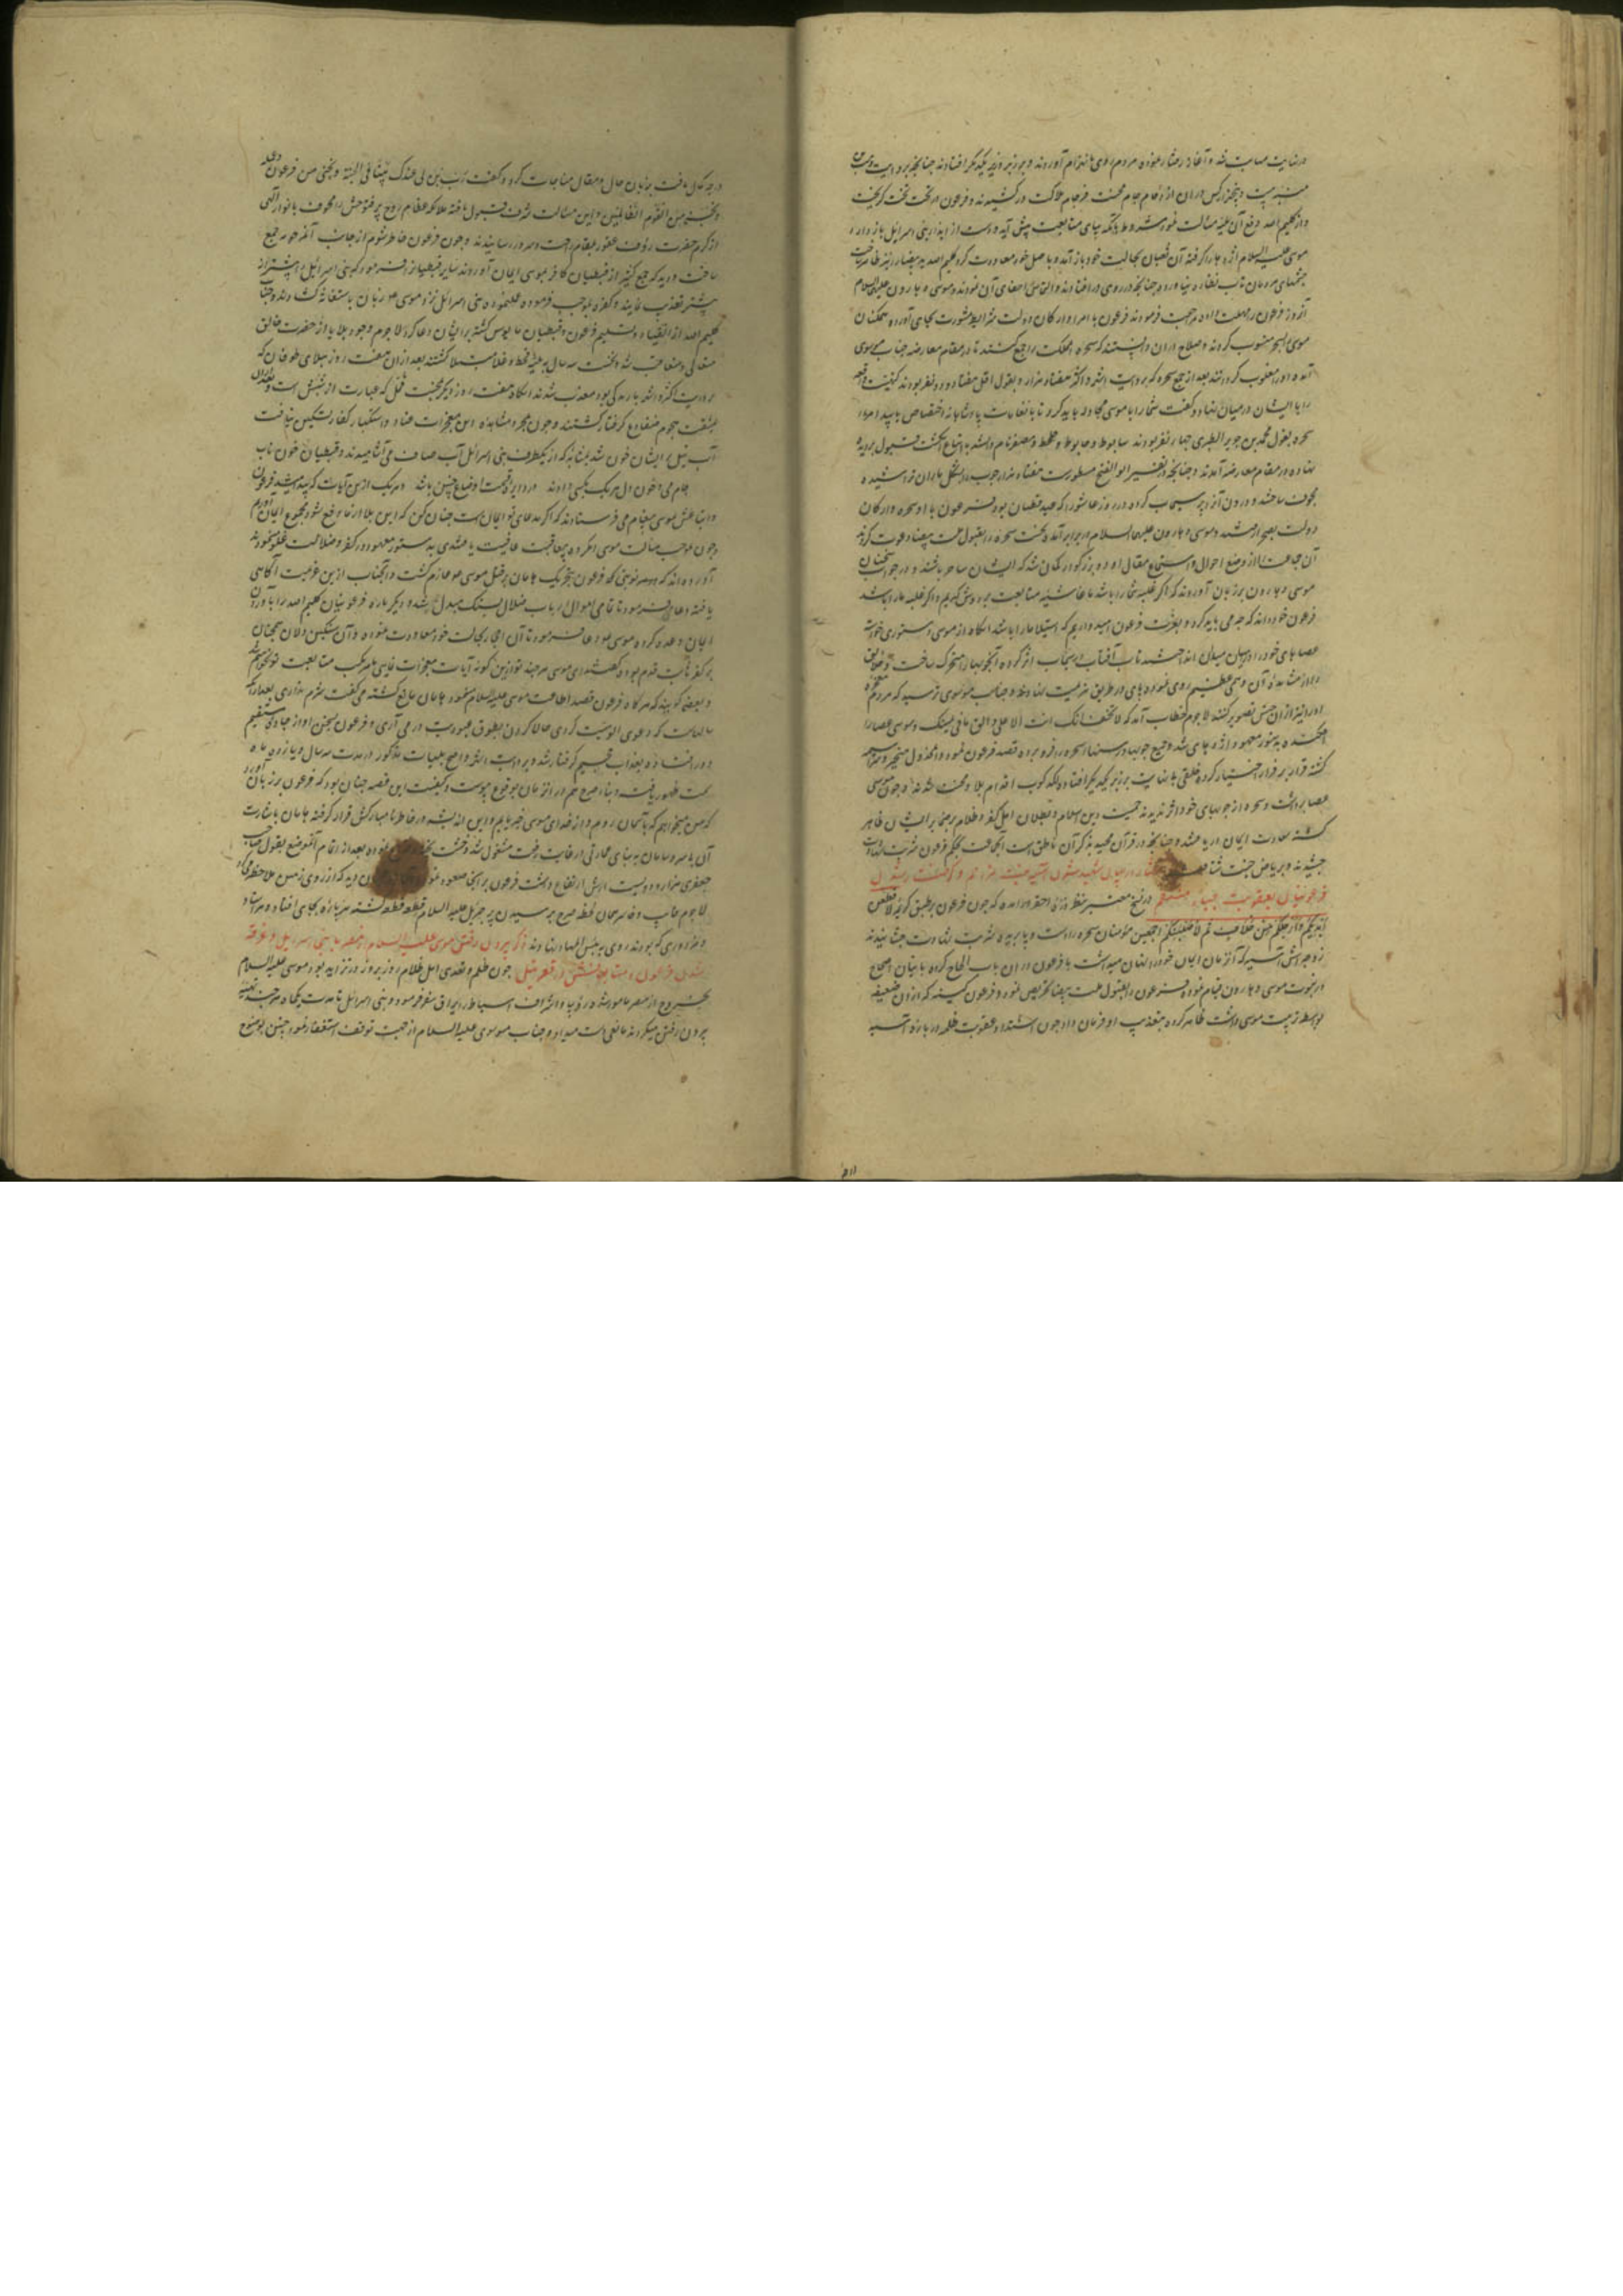 در غایت مهابت شد و آغاز رفتار نموده مردم روی بانهزام آوردند و بر زبر یکدیگر افتادند چنانچه بروایت
بیست و پنجهزار کس در آن ازدحام جام محنت فرجام هلاکت در کشیدند و فرعون از تخت گریخت
و از کلیم الله دفع آن بلیه مسالت نمود مشروط بآنکه بپای متابعت پیش آید و دست از ایذاء بنی اسرائیل باز دارد
موسی علیه السلام اژدها را گرفته آن ثعبان بحالت خود باز آمد و باصل خود معاودت کرد کلیم الله ید بیضا
چشمهای مردمان تاب نظاره نیاورده چنانچه در روی در افتادند و التماس اخفای آن نمودند و موسی و هارون علیهما السلام
آنروز فرعون را مهلت داده مراجعت فرمودند فرعون با امرا و ارکان دولت شرایط مشورت بجای آورده همکنان
موسی را بسحر منسوب کردند و صلاح در آن دانستند که سحره مملکت را جمع کنند تا در مقام معارضه جناب موسوی
آمده او را مغلوب گردانند بعد از جمع سحره که بروایت اشهر و اکثر هفتاد هزار و بقول اقل هفتاد و دو نفر بودند کیفیت واقعه
را با ایشان در میان نهاد و گفت شما را با موسی مجادله باید کرد تا بانعامات پادشاهانه اختصاص یابید
سحره بقول محمد بن جریر الطبری چهار نفر بودند سابوط و عابوط و حطط و مصفی نام داشتند با اتباع انگشت قبول بر دیده
نهاده در مقام معارضه آمدند و چنانچه در تفسیر ابو الفتح مسطورست هفتاد هزار چوب را بشکل ماران تراشیده
مجوف ساختند و درون آنرا پر سیماب کرده در روز عاشورا که عید قبطیان بود فرعون با او سحره و ارکان
دولت بصحرا شد و موسی و هارون علیهما السلام در برابر آمده نخست سحره را بقبول ملت بیضا دعوت کردند
آن جماعت را از وضع احوال و استماع مقال او دو بزرگوار گمان شد که ایشان ساحر نباشند و در جواب سخنان
موسی و هارون بر زبان آوردند که اگر غلبه شما را باشد ما غاشیه متابعت بر دوش گیریم و اگر غلبه ما را باشد
فرعون خود داند که چه می باید کرد و بعزت فرعون امیدواریم که استیلا ما را باشد آنگاه از موسی دستوری خواسته
عصاهای خود را در میان میدان انداختند تاب آفتاب در سیماب اثر کرده آنچوبها را متحرک ساخت و خلایق
را از مشاهده آن وهمی عظیم روی نموده پای در طریق هزیمت نهادند و جناب موسوی ترسید که مردم معجزه
او را نیز از آن جنس تصور کنند لاجرم خطاب آمد که لا تخف انک انت الاعلی و الق ما فی یمینک و موسی عصا را
افکنده بدستور معهود اژدهای شد و جمیع چوبها و ریسمانها سحره را فرو برده قصد فرعون نمود و آنمخذول متحیر و سراسیمه
گشته قرار بر فرار اختیار کرد و خلقی بی نهایت بر زبر یکدیگر افتاده لگدکوب اقدام بلا و محنت شدند و چون موسی
عصا برداشت و سحره از چوبهای خود اثر ندیدند حقیت دین اسلام و بطلان اهل کفر و ظلام بر ضمایر ایشان ظاهر
گشته سعادت ایمان دریافتند و چنانچه در قرآن مجید بذکر آن ناطق است آنجماعت بحکم فرعون شربت شهادت
چشیدند و بریاض جنت شتافتند گفتار در بیان شهید شدن آسیه بنت مزاحم و گرفتار شدن
فرعونیان بعقوبت جبار منتقم در تاریخ معتبر بنظر ذره احقر در آمده که چون فرعون بر طبق کریمه لاقطعن
ایدیکم و ارجلکم من خلاف ثم لاصلبنکم اجمعین مؤمنان سحره را دست و پا بریده شربت شهادت چشانید
زوجه اش آسیه که آنزمان ایمان خود را پنهان میداشت با فرعون در آن باب الحاح کرده
در نبوت موسی و هارون قیام نموده فرعون را بقبول ملت بیضا تحریص نمود و فرعون کینه که از آن ضعیفه
بواسطه تربیت موسی داشت ظاهر کرده بتعذیب او فرمان داد چون اشتداد عقوبت ظلمه درباره آسیه
۲۱۱
درجه کمال یافت بزبان حال و مقال مناجات کرد و گفت رب ابن لی عندک بیتا فی الجنة و نجنی من فرعون و عمله
و نجنی من القوم الظالمین و این مسالت شرف قبول یافته ملائکه عظام روح پر فتوحش را محفوف بانوار الهی
از کرم حضرت رؤف غفور بمقام راحت و سرور رسانیدند و چون فرعون خاطر شوم از جانب آنخرحوره جمع
ساخت و دید که جمع کثیر از قبطیان کافر بموسی ایمان آوردند سایر قبطیان را فرمود که بنی اسرائیل را بیشتر از
پیشتر تعذیب نمایند و کفره بموجب فرموده عمل نموده بنی اسرائیل نزد موسی ع زبان باستغاثه گشادند و جناب
کلیم الله از انقیاد و تسلیم فرعون و قبطیان مایوس گشته بر ایشان دعا کرد لاجرم وجود بلایا از حضرت خالق
متعالی متعاقب شد و نخست سه سال به بلیه قحط و غلا مبتلا گشتند بعد از آن هفت روز ببلای طوفان که
بروایت اکثر و اشهر باریدگی بود معذب شدند آنگاه هفت روز دیگر بمحنت قمل که عبارت از شپش است و بعد از آن
بمشقت هجوم ضفادع گرفتار گشتند و چون بمجرد مشاهده این معجزات عناد و استکبار کفار تسکین نیافت
آب نیل بر ایشان خون شد بمثابه که از یکطرف بنی اسرائیل آب صاف می آشامیدند و قبطیان خون ناب
جام می و خون دل هر یک بکسی دادند در دایره قسمت اوضاع چنین باشد و هر یک از این آیات که پدید میشد فرعون
و اتباعش بموسی پیغام می فرستادند که اگر مدعای تو ایمان ماست چنان کن که این بلا از ما دفع شود بمجموع ایمان آوریم
و چون بموجب مسالت موسی دعا کرده بعاقبت عافیت یافتندی بدستور معهود در کفر و ضلالت غلو نمودند
آورده اند که در نوبتی که فرعون بتحریک هامان بر قتل موسی ع عازم گشت و آنجناب از این عزیمت آگاهی
یافته دعا فرمود تا تمامی اموال ارباب ضلال بسنگ مبدل شد و دیگر باره فرعونیان کلیم الله را بآوردن
ایمان وعده کرده موسی ع دعا فرمود تا آن احجار بحالت خود معاودت نموده و آن سنگین دلان همچنان
بر کفر ثابت قدم بوده گفتند ای موسی هر چند تو ازین گونه آیات معجزات نمایی ما مرتکب متابعت تو نخواهیم شد
و بعضی گویند که هر گاه فرعون قصد اطاعت موسی علیه السلام مینمود هامان مانع گشته می گفت شرم نداری بعد از آنکه
سالهاست که دعوی الوهیت کردی حالا گردن بطوق عبودیت در می آری و فرعون بسخن او از جاده مستقیم
دور افتاده بعذاب جحیم گرفتار شد و بروایت اشهر و اصح بلیات مذکور در مدت سه سال و یازده ماه
سمت ظهور یافت و بناء صرح هم در آنزمان بوقوع پیوست و کیفیت این قصه چنان بود که فرعون بر زبان آورد
که من میخواهم که بآسمان روم و از خدای موسی خبر یابم و این اندیشه در خاطر نامبارکش قرار گرفته هامان باشارت
آن بی سر و سامان به بنای عمارتی در غایت رفعت مشغول شد و خشت پخته بعد از اتمام آنموضع بقول صاحب
جعفری هزار و دویست ارش ارتفاع داشت فرعون بر آنجا صعود نموده دید که از روی زمین ملاحظه میکرد
لاجرم خایب و خاسر همان لحظه صرح بر سیدن پر جبریل علیه السلام قطعه قطعه گشته هر پاره بجای افتاد و هر استاد
و مزدوری که بودند روی به بئس المهاد نهادند ذکر بیرون رفتن موسی علیه السلام از مصر با بنی اسرائیل و غرقه
شدن فرعون و متابعانش در قعر نیل چون ظلم و تعدی اهل ظلام روز بروز در تزاید بود موسی علیه السلام
بخروج از مصر مامور شد رؤسا و اشراف اسباط را بیراق سفر فرمود و بنی اسرائیل تا مدت یکماه هر چند تهیه
بیرون رفتن میکردند مانعی دست میداد و جناب موسوی علیه السلام از جهت توقف استغفار نمود جنس بوضوح